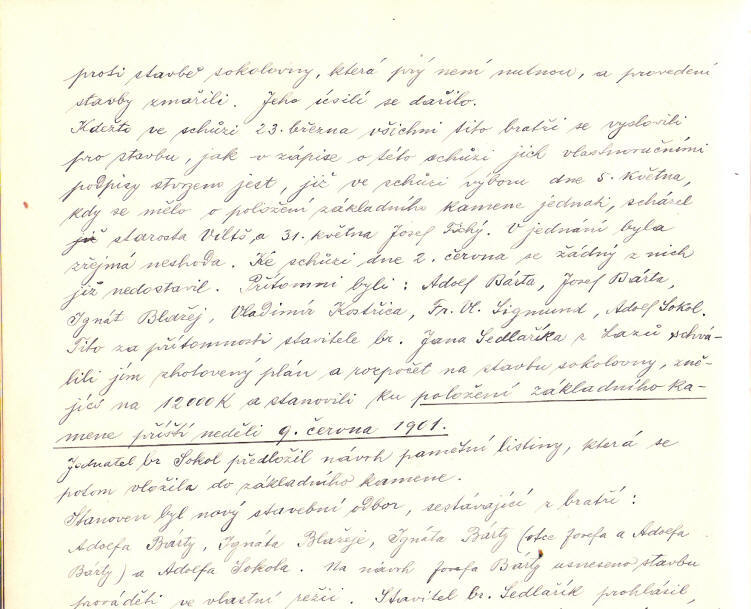 proti stavbě sokolovny, která prý není nutnou, a provedení
stavby zmařili. Jeho úsilí se dařilo.
Kdežto ve schůzi 23. března všichni tito bratři se vyslovili
pro stavbu, jak v zápise o této schůzi jich vlastnoručními
podpisy stvrzeno jest, již ve schůzi výboru dne 5. května,
kdy se mělo o položení základního kamene jednati, scházel
již starosta Viltš a 31. května Josef Tichý. V jednání byla
zřejmá neshoda. Ke schůzi dne 2. června se žádný z nich
již nedostavil. Přítomni byli: Adolf Bárta, Josef Bárta,
Ignát Blažej, Vladimír Kostřica, Fr. Vl. Sigmund, Adolf Sokol.
Tito za přítomnosti stavitele br. Jana Sedlaříka z Lazů schvá-
lili jím zhotovený plán a rozpočet na stavbu sokolovny, zně-
jící na 12000 K a stanovili ku položení základního ka-
mene příští neděli 9. června 1901.
Jednatel br Sokol předložil návrh pamětní listiny, která se
potom vložila do základního kamene.
Stanoven byl nový stavební odbor, sestávající z bratří:
Adolfa Bárty, Ignáta Blažeje, Ignáta Bárty (otce Josefa a Adolfa
Bárty) a Adolfa Sokola. Na návrh Josefa Bárty usneseno stavbu
prováděti ve vlastní režii. Stavitel br. Sedlařík prohlásil,